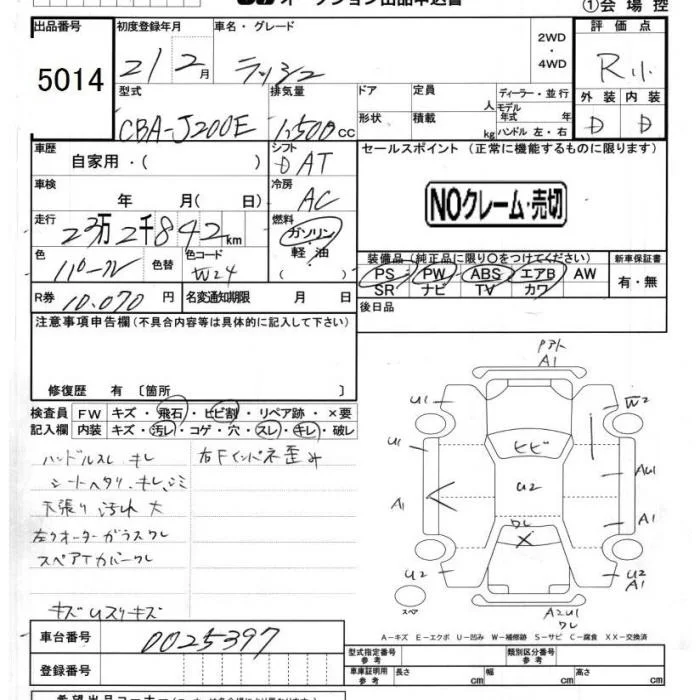 ①会場控
出品番号
5014
初度登録年月
21 2月
車名・グレード
ラッシュ
2WD
・
4WD
評価点
R
型式
CBA-J200E
排気量
1,500cc
ドア
定員
人
ディーラー・並行
モデル年式 年
形状
積載
kg
ハンドル 左・右
外装
内装
D
D
車歴
自家用・( )
シフト
DAT
セールスポイント (正常に機能するものに限ります)
車検
年 月( 日)
冷房
AC
NOクレーム・売切
走行
23万2千842km
燃料
ガソリン・
軽・油
( )
色
パール
色替
色コード
W24
装備品(純正品に限り〇をつけてください)
新車保証書
PS PW ABS エアB AW
SR ナビ TV カワ
有・無
R券
10,070円
名変通知期限 月 日
後日品
注意事項申告欄(不具合内容等は具体的に記入して下さい)
修復歴 有〔箇所 〕
検査員
記入欄
FW キズ・飛石・ヒビ割・リペア跡・×要
内装 キズ・汚レ・コゲ・穴・スレ・キレ・破レ
ハンドルスレ キレ
右Fインパネ歪み
シートヘタリ、キレ、シミ
天張り汚れ大
左クオーターガラスワレ
スペアTカバーワレ
キズUスリキズ
A1
U1
W2
U1
ヒビ
A1
U2
AU1
A1
ワレ
U2
U2
A1
スペア
A2U1
ワレ
A-キズ E-エクボ U-凹み W-補修跡 S-サビ C-腐食 XX-交換済
車台番号
0025397
登録番号
型式指定番号
参考
類別区分番号
参考
車庫証明用
参考
長さ cm
幅 cm
高さ cm